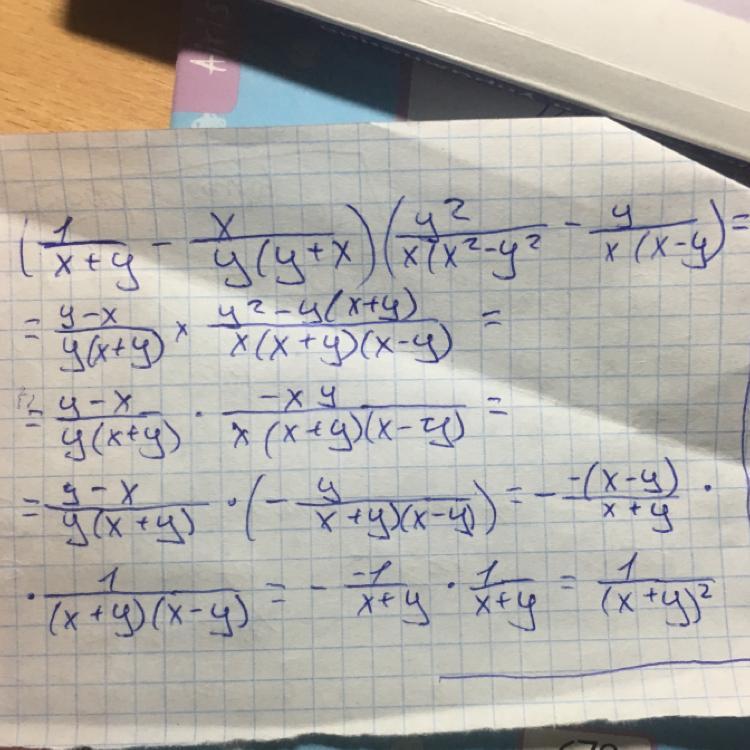 (1/(x+y) - x/(y(y+x)))(y²/(x(x²-y²) - y/(x(x-y))) =
= (y-x)/(y(x+y)) × (y²-y(x+y))/(x(x+y)(x-y)) =
= (y-x)/(y(x+y)) · (-xy)/(x(x+y)(x-y)) =
= (y-x)/(y(x+y)) · (- y/(x+y)(x-y)) = - (-(x-y))/(x+y) ·
· 1/((x+y)(x-y)) = - (-1)/(x+y) · 1/(x+y) = 1/(x+y)²